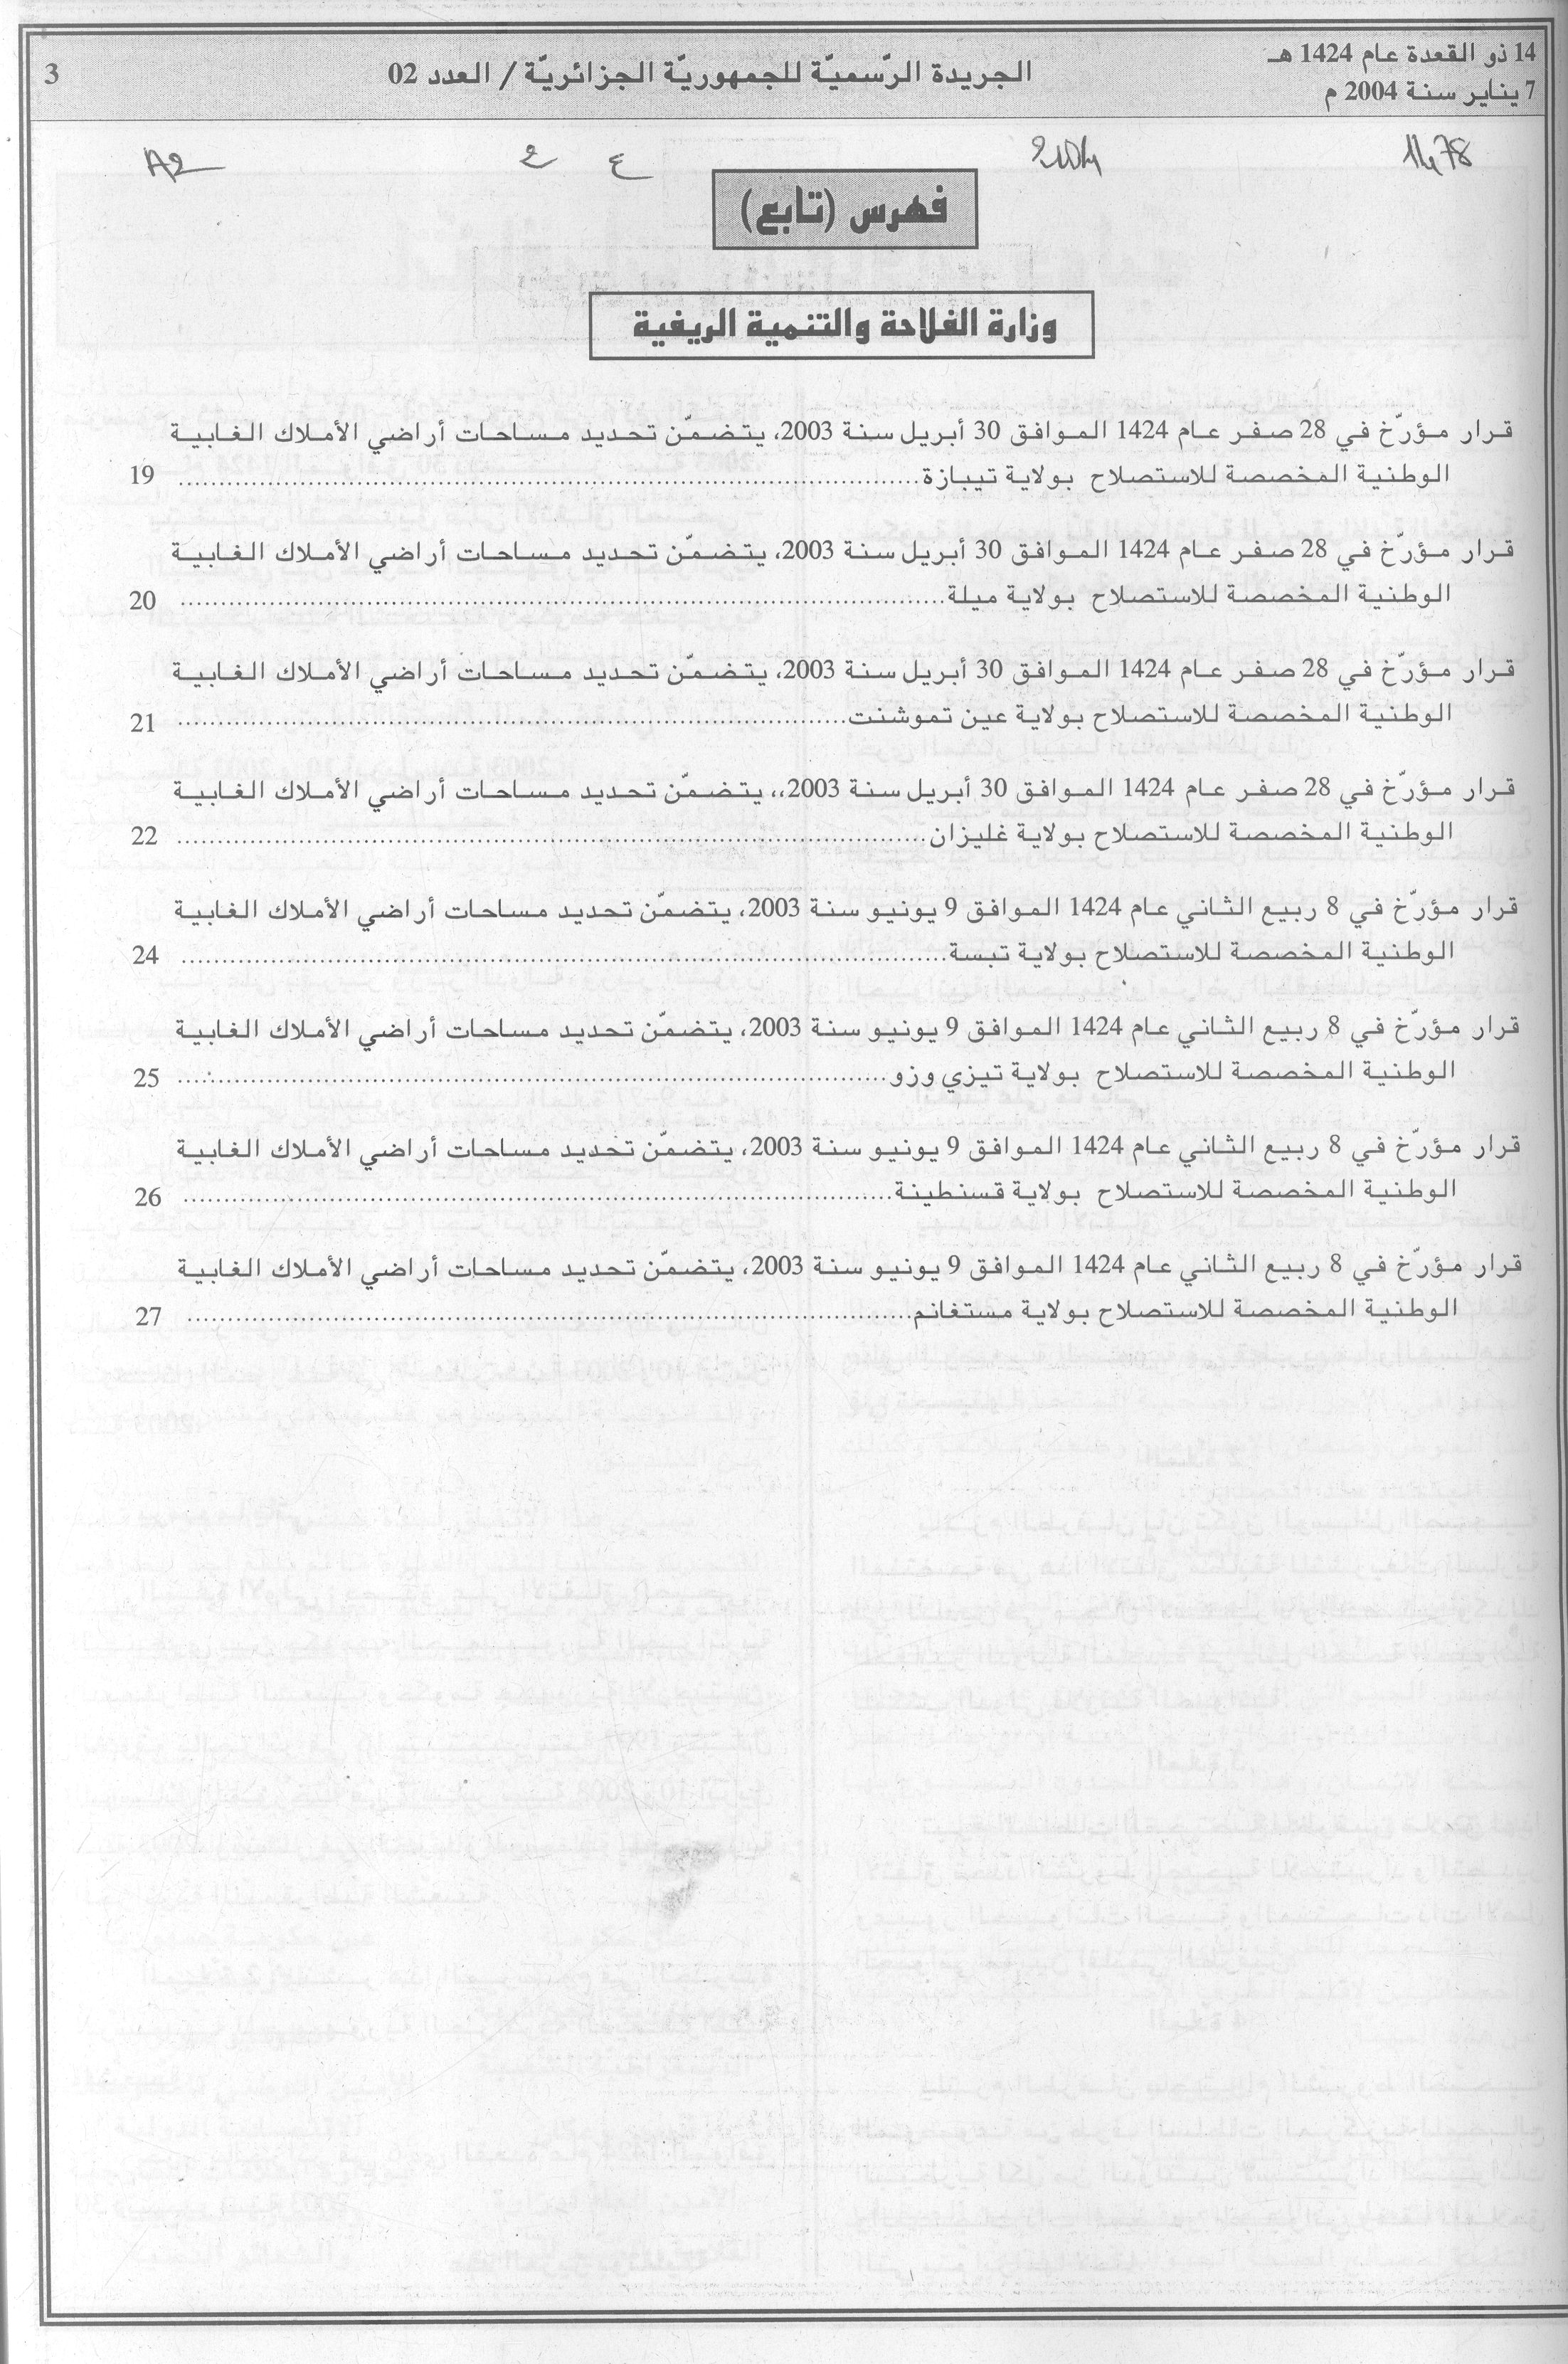 14 ذو القعدة عام 1424 هـ
7 يناير سنة 2004 م
الجريدة الرّسميّة للجمهوريّة الجزائريّة / العدد 02
3
1478
2004
ع
2
A2
فهرس (تابع)
وزارة الفلاحة والتنمية الريفية
قرار مؤرّخ في 28 صفر عام 1424 الموافق 30 أبريل سنة 2003، يتضمّن تحديد مساحات أراضي الأملاك الغابية
الوطنية المخصصة للاستصلاح بولاية تيبازة........................................ 19
قرار مؤرّخ في 28 صفر عام 1424 الموافق 30 أبريل سنة 2003، يتضمّن تحديد مساحات أراضي الأملاك الغابية
الوطنية المخصصة للاستصلاح بولاية ميلة........................................ 20
قرار مؤرّخ في 28 صفر عام 1424 الموافق 30 أبريل سنة 2003، يتضمّن تحديد مساحات أراضي الأملاك الغابية
الوطنية المخصصة للاستصلاح بولاية عين تموشنت........................................ 21
قرار مؤرّخ في 28 صفر عام 1424 الموافق 30 أبريل سنة 2003،، يتضمّن تحديد مساحات أراضي الأملاك الغابية
الوطنية المخصصة للاستصلاح بولاية غليزان........................................ 22
قرار مؤرّخ في 8 ربيع الثاني عام 1424 الموافق 9 يونيو سنة 2003، يتضمّن تحديد مساحات أراضي الأملاك الغابية
الوطنية المخصصة للاستصلاح بولاية تبسة........................................ 24
قرار مؤرّخ في 8 ربيع الثاني عام 1424 الموافق 9 يونيو سنة 2003، يتضمّن تحديد مساحات أراضي الأملاك الغابية
الوطنية المخصصة للاستصلاح بولاية تيزي وزو........................................ 25
قرار مؤرّخ في 8 ربيع الثاني عام 1424 الموافق 9 يونيو سنة 2003، يتضمّن تحديد مساحات أراضي الأملاك الغابية
الوطنية المخصصة للاستصلاح بولاية قسنطينة........................................ 26
قرار مؤرّخ في 8 ربيع الثاني عام 1424 الموافق 9 يونيو سنة 2003، يتضمّن تحديد مساحات أراضي الأملاك الغابية
الوطنية المخصصة للاستصلاح بولاية مستغانم........................................ 27